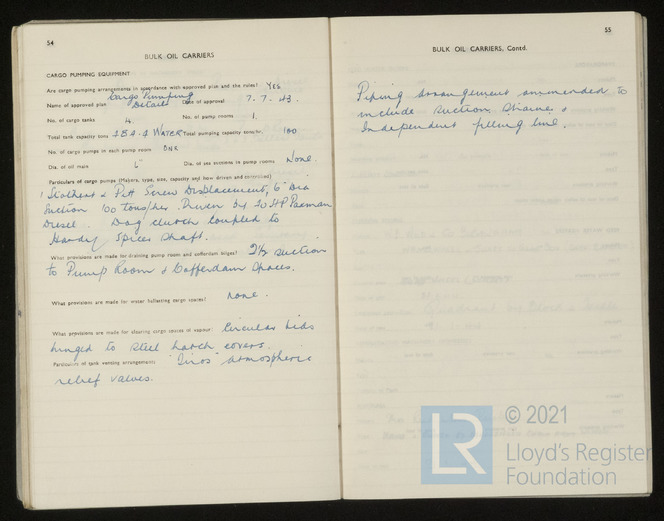 54
BULK OIL CARRIERS
CARGO PUMPING EQUIPMENT
Are cargo pumping arrangements in accordance with approved plan and the rules? YES
Name of approved plan Cargo Pumping Details Date of approval 7. 7. 43.
No. of cargo tanks 4. No. of pump rooms 1.
Total tank capacity tons WATER Total pumping capacity tons/hr. 100
No. of cargo pumps in each pump room ONE
Dia. of oil main 6" Dia. of sea suctions in pump rooms None.
Particulars of cargo pumps (Makers, type, size, capacity and how driven and controlled)
1 Stothert & Pitt Screw Displacement, 6" Dia
Suction 100 tons/hr. Driven by 20 HP Paxman
Diesel. Dog clutch coupled to
Hardy Spicer shaft.
What provisions are made for draining pump room and cofferdam bilges? 2½ suction
to Pump Room & Cofferdam spaces.
What provisions are made for water ballasting cargo spaces? None.
What provisions are made for clearing cargo spaces of vapour? Circular lids
hinged to steel hatch covers.
Particulars of tank venting arrangements atmospheric
relief valves.
55
BULK OIL CARRIERS, Contd.
Piping arrangement ammended to
include suction strainer &
Independent filling line.
LR
© 2021
Lloyd's Register
Foundation